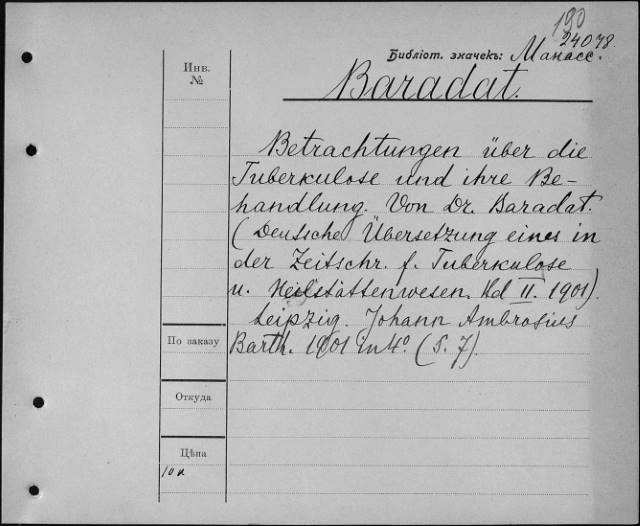 190
24078.
Библіот. значекъ: Манасс.
Инв.
№
Baradat.
Betrachtungen über die
Tuberkulose und ihre Be-
handlung. Von Dr. Baradat.
(Deutsche Übersetzung eines in
der Zeitschr. f. Tuberkulose
u. Heilstättenwesen. Bd II. 1901).
Leipzig. Johann Ambrosius
По заказу
Barth. 1901 in 4° (S. 7).
Откуда
Цѣна
10 к